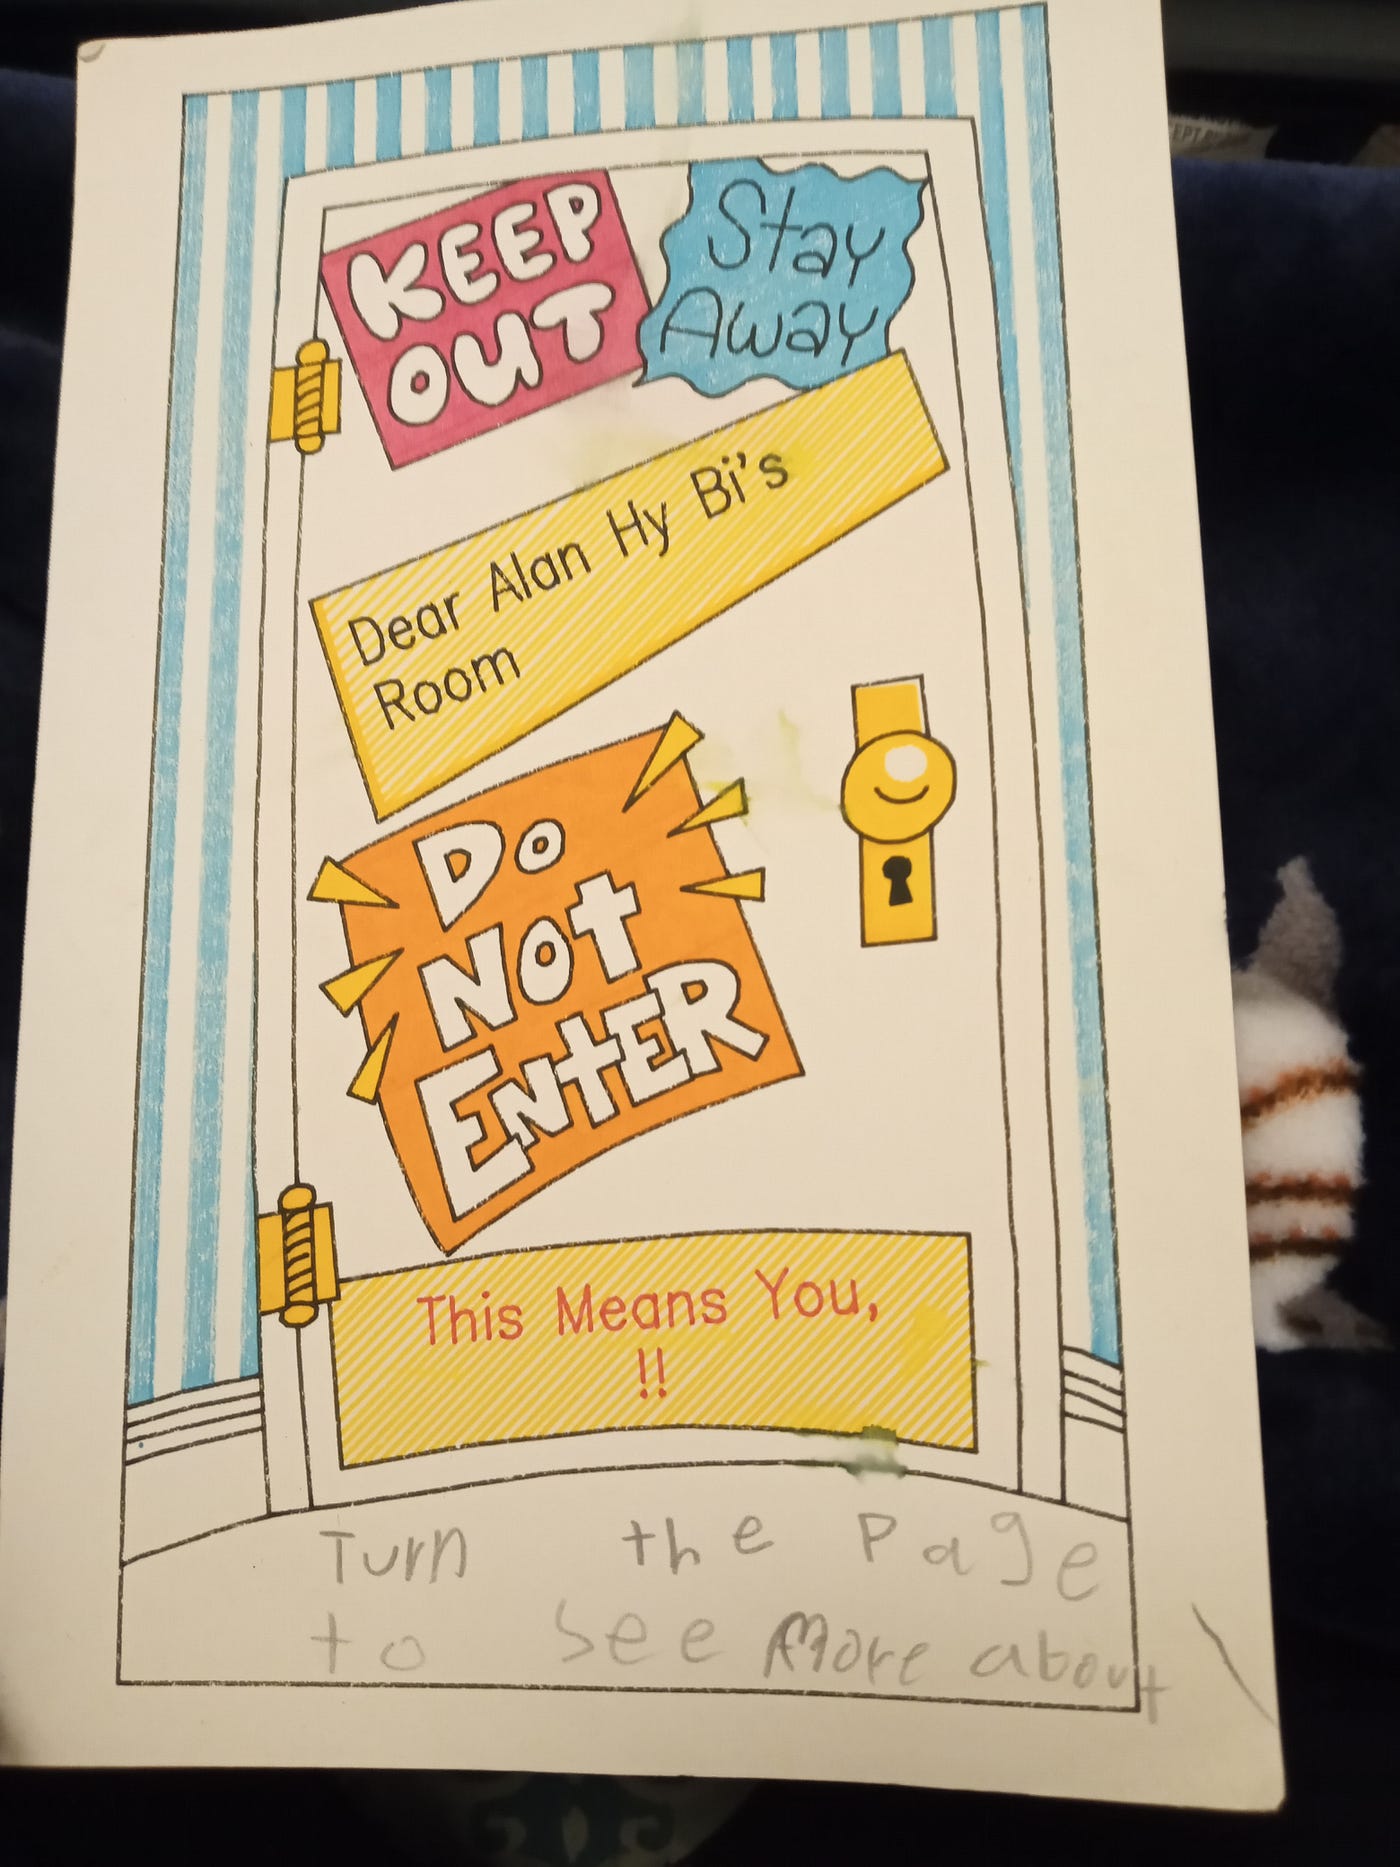 KEEP
OUT
Stay
Away
Dear Alan Hy Bi's
Room
Do
Not
Enter
This Means You,
!!
Turn the Page
to see More about